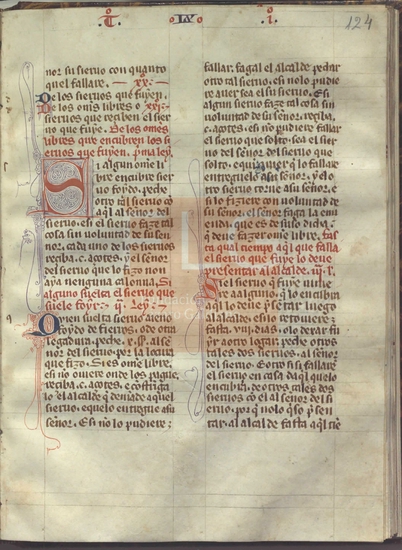 T. IX I.
124
nor su sieruo con quanto
quel fallare. xx.
De los sieruos que fuyen.
De los oms libres o xxi.
sieruos que reçiben el sier
uo que fuye. De los omes
libres que encubren los si
eruos que fuyen. pma ley.
Si algun ome li
bre encubre sier
uo foydo. peche
otro tal sieruo cõ
aq̃l al señor del
sieruo. τ si el sieruo faze tal
cosa sin uoluntad de su sen
nor. cada uno de los sieruos
reçiba .c. açotes. τ el señor
del sieruo que lo fizo non
aya nenguna calonna. Si
alguno suelta el sieruo que
suele foyr. ii. Ley.
Qvien suelta sieruo ageno
foydo de fierros. o de otra
legadura. peche .x. ss. al se
nor del sieruo. por la locura
que fizo. Si es ome libre.
τ si no ouiere onde los pague.
reçiba .c. açotes. τ costriga
lo el alcalde q̃ demãde aquel
sieruo. τ quelo entregue a su
señor. E si no lo pudiere
fallar. fagal el alcalde pechar
otro tal sieruo. τ si nolo pudie
re auer sea el su sieruo. E si
algun sieruo faze tal cosa sin
uoluntad de su señor. reçiba
.c. açotes. τ si no pudiere fallar
el sieruo que solto. sea el sier
uo del señor del sieruo que
solto. τ qual quier q̃ lo fallare
entreguelo a su señor. τ el o
tro sieruo torne a su señor. τ
si lo fiziere con uoluntad de
su señor. el señor faga la em
ienda. que es de suso dicha.
q̃ deue fazer ome libre. fas
ta qual tiempo aq̃l que falla
el sieruo que fuye lo deue
presentar al alcalde. iii. l.
Si el sieruo q̃ fuye uinie
re a alguno. τ lo encubre
aq̃l lo deue p̃sentar luego
al alcalde. τ si lo retouiere
fasta .viii. dias. o lo derar fu
yr a otro logar. peche otros
tales dos sieruos. al señor
del sieruo. E otro si si fallare
el sieruo en casa daq̃l quelo
encubre. de otros tales dos
sieruos cõ el al señor del si
eruo. por q̃ nolo q̃so p̃sen
tar. al alcalde fasta aq̃l tiẽ